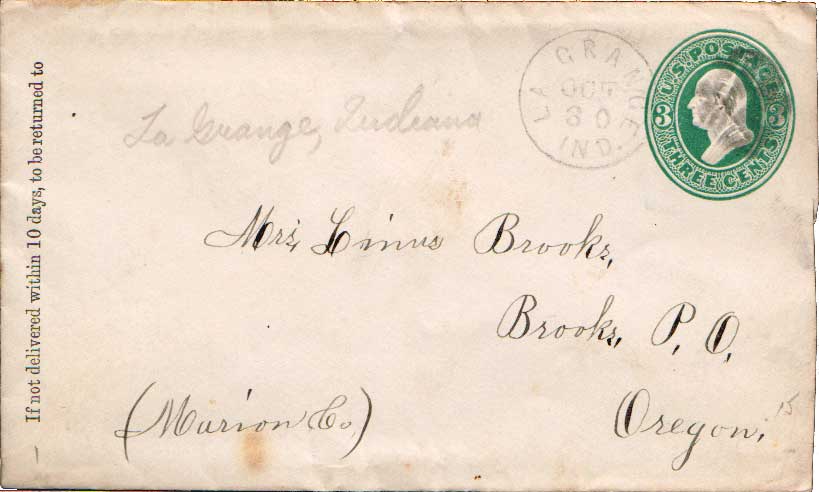 If not delivered within 10 days, to be returned to
La Grange, Indiana
LA GRANGE
OCT
30
IND.
U.S. POSTAGE
3 3
THREE CENTS
Mrs, Linus Brooks,
Brooks, P. O,
(Marion Co,)
Oregon,
15